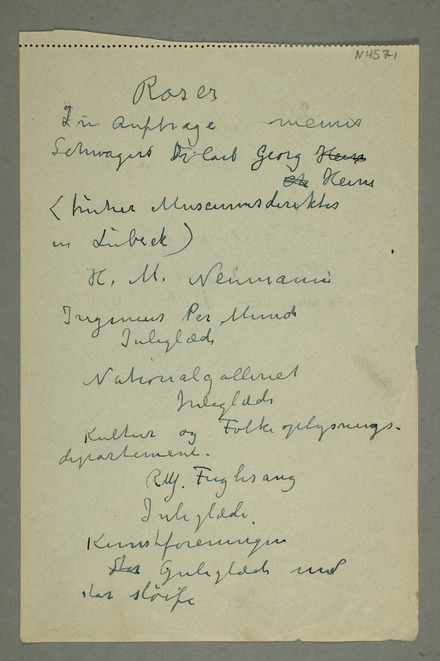 N4571
Roser
Im Auftrage meines
Schwagers Dr. Carl Georg Heise
Heise
(früher Museumsdirektor
in Lübeck)
H. M. Neumann
Ingeniør Per Munds
Juleglæde
Nationalgalleriet
Juleglæde
Kultur og Folkeoplysnings-
departement.
Juleglæde
Kunstforeningen
Juleglæde med
stor sløife